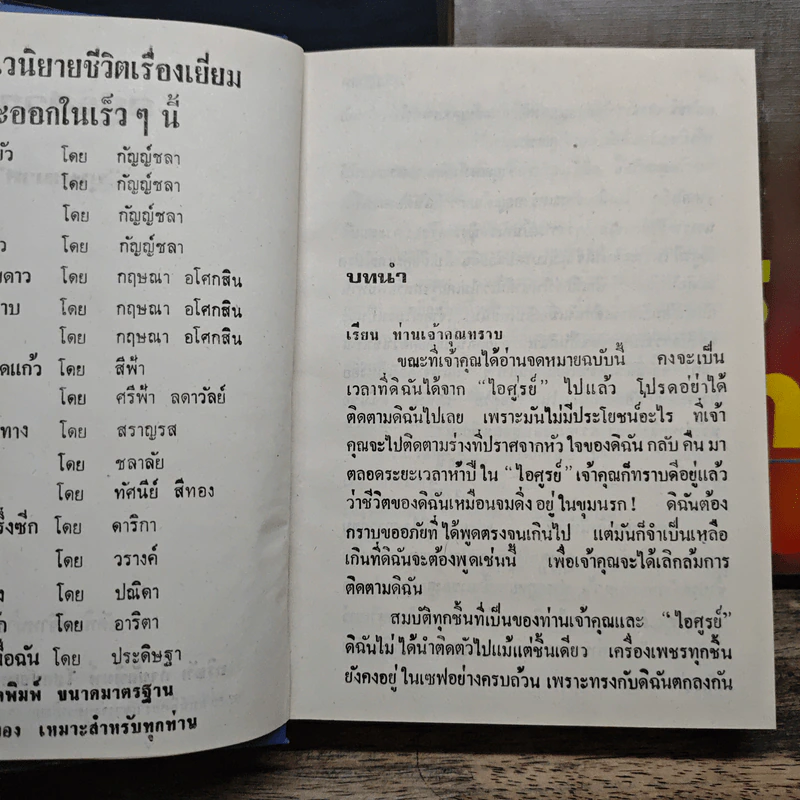 วนิยายชีวิตเรื่องเยี่ยม
ะออกในเร็ว ๆ นี้
บัว โดย กัญญ์ชลา
โดย กัญญ์ชลา
โดย กัญญ์ชลา
ว โดย กัญญ์ชลา
ดาว โดย กฤษณา อโศกสิน
าบ โดย กฤษณา อโศกสิน
โดย กฤษณา อโศกสิน
ดแก้ว โดย สีฟ้า
โดย ศรีฟ้า ลดาวัลย์
ทาง โดย สราญรส
โดย ชลาลัย
โดย ทัศนีย์ สีทอง
ร็งซีก โดย ดาริกา
โดย วรางค์
ง โดย ปณิตา
ัก โดย อาริตา
พื่อฉัน โดย ประดิษฐา
ดพิมพ์ ขนาดมาตรฐาน
ของ เหมาะสำหรับทุกท่าน
บทนำ
เรียน ท่านเจ้าคุณทราบ
ขณะที่เจ้าคุณได้อ่านจดหมายฉบับนี้ คงจะเป็น
เวลาที่ดิฉันได้จาก “ไอศูรย์” ไปแล้ว โปรดอย่าได้
ติดตามดิฉันไปเลย เพราะมันไม่มีประโยชน์อะไร ที่เจ้า
คุณจะไปติดตามร่างที่ปราศจากหัว ใจของดิฉัน กลับ คืน มา
ตลอดระยะเวลาห้าปี ใน “ไอศูรย์” เจ้าคุณก็ทราบดีอยู่แล้ว
ว่าชีวิตของดิฉันเหมือนจมดิ่ง อยู่ ในขุมนรก! ดิฉันต้อง
กราบขออภัยที่ ได้พูดตรงจนเกินไป แต่มันก็จำเป็นเหลือ
เกินที่ดิฉันจะต้องพูดเช่นนี้ เพื่อเจ้าคุณจะได้เลิกล้มการ
ติดตามดิฉัน
สมบัติทุกชิ้นที่เป็นของท่านเจ้าคุณและ “ไอศูรย์”
ดิฉันไม่ ได้นำติดตัวไปแม้แต่ชิ้นเดียว เครื่องเพชรทุกชิ้น
ยังคงอยู่ ในเซฟอย่างครบถ้วน เพราะทรงกับดิฉันตกลงกัน